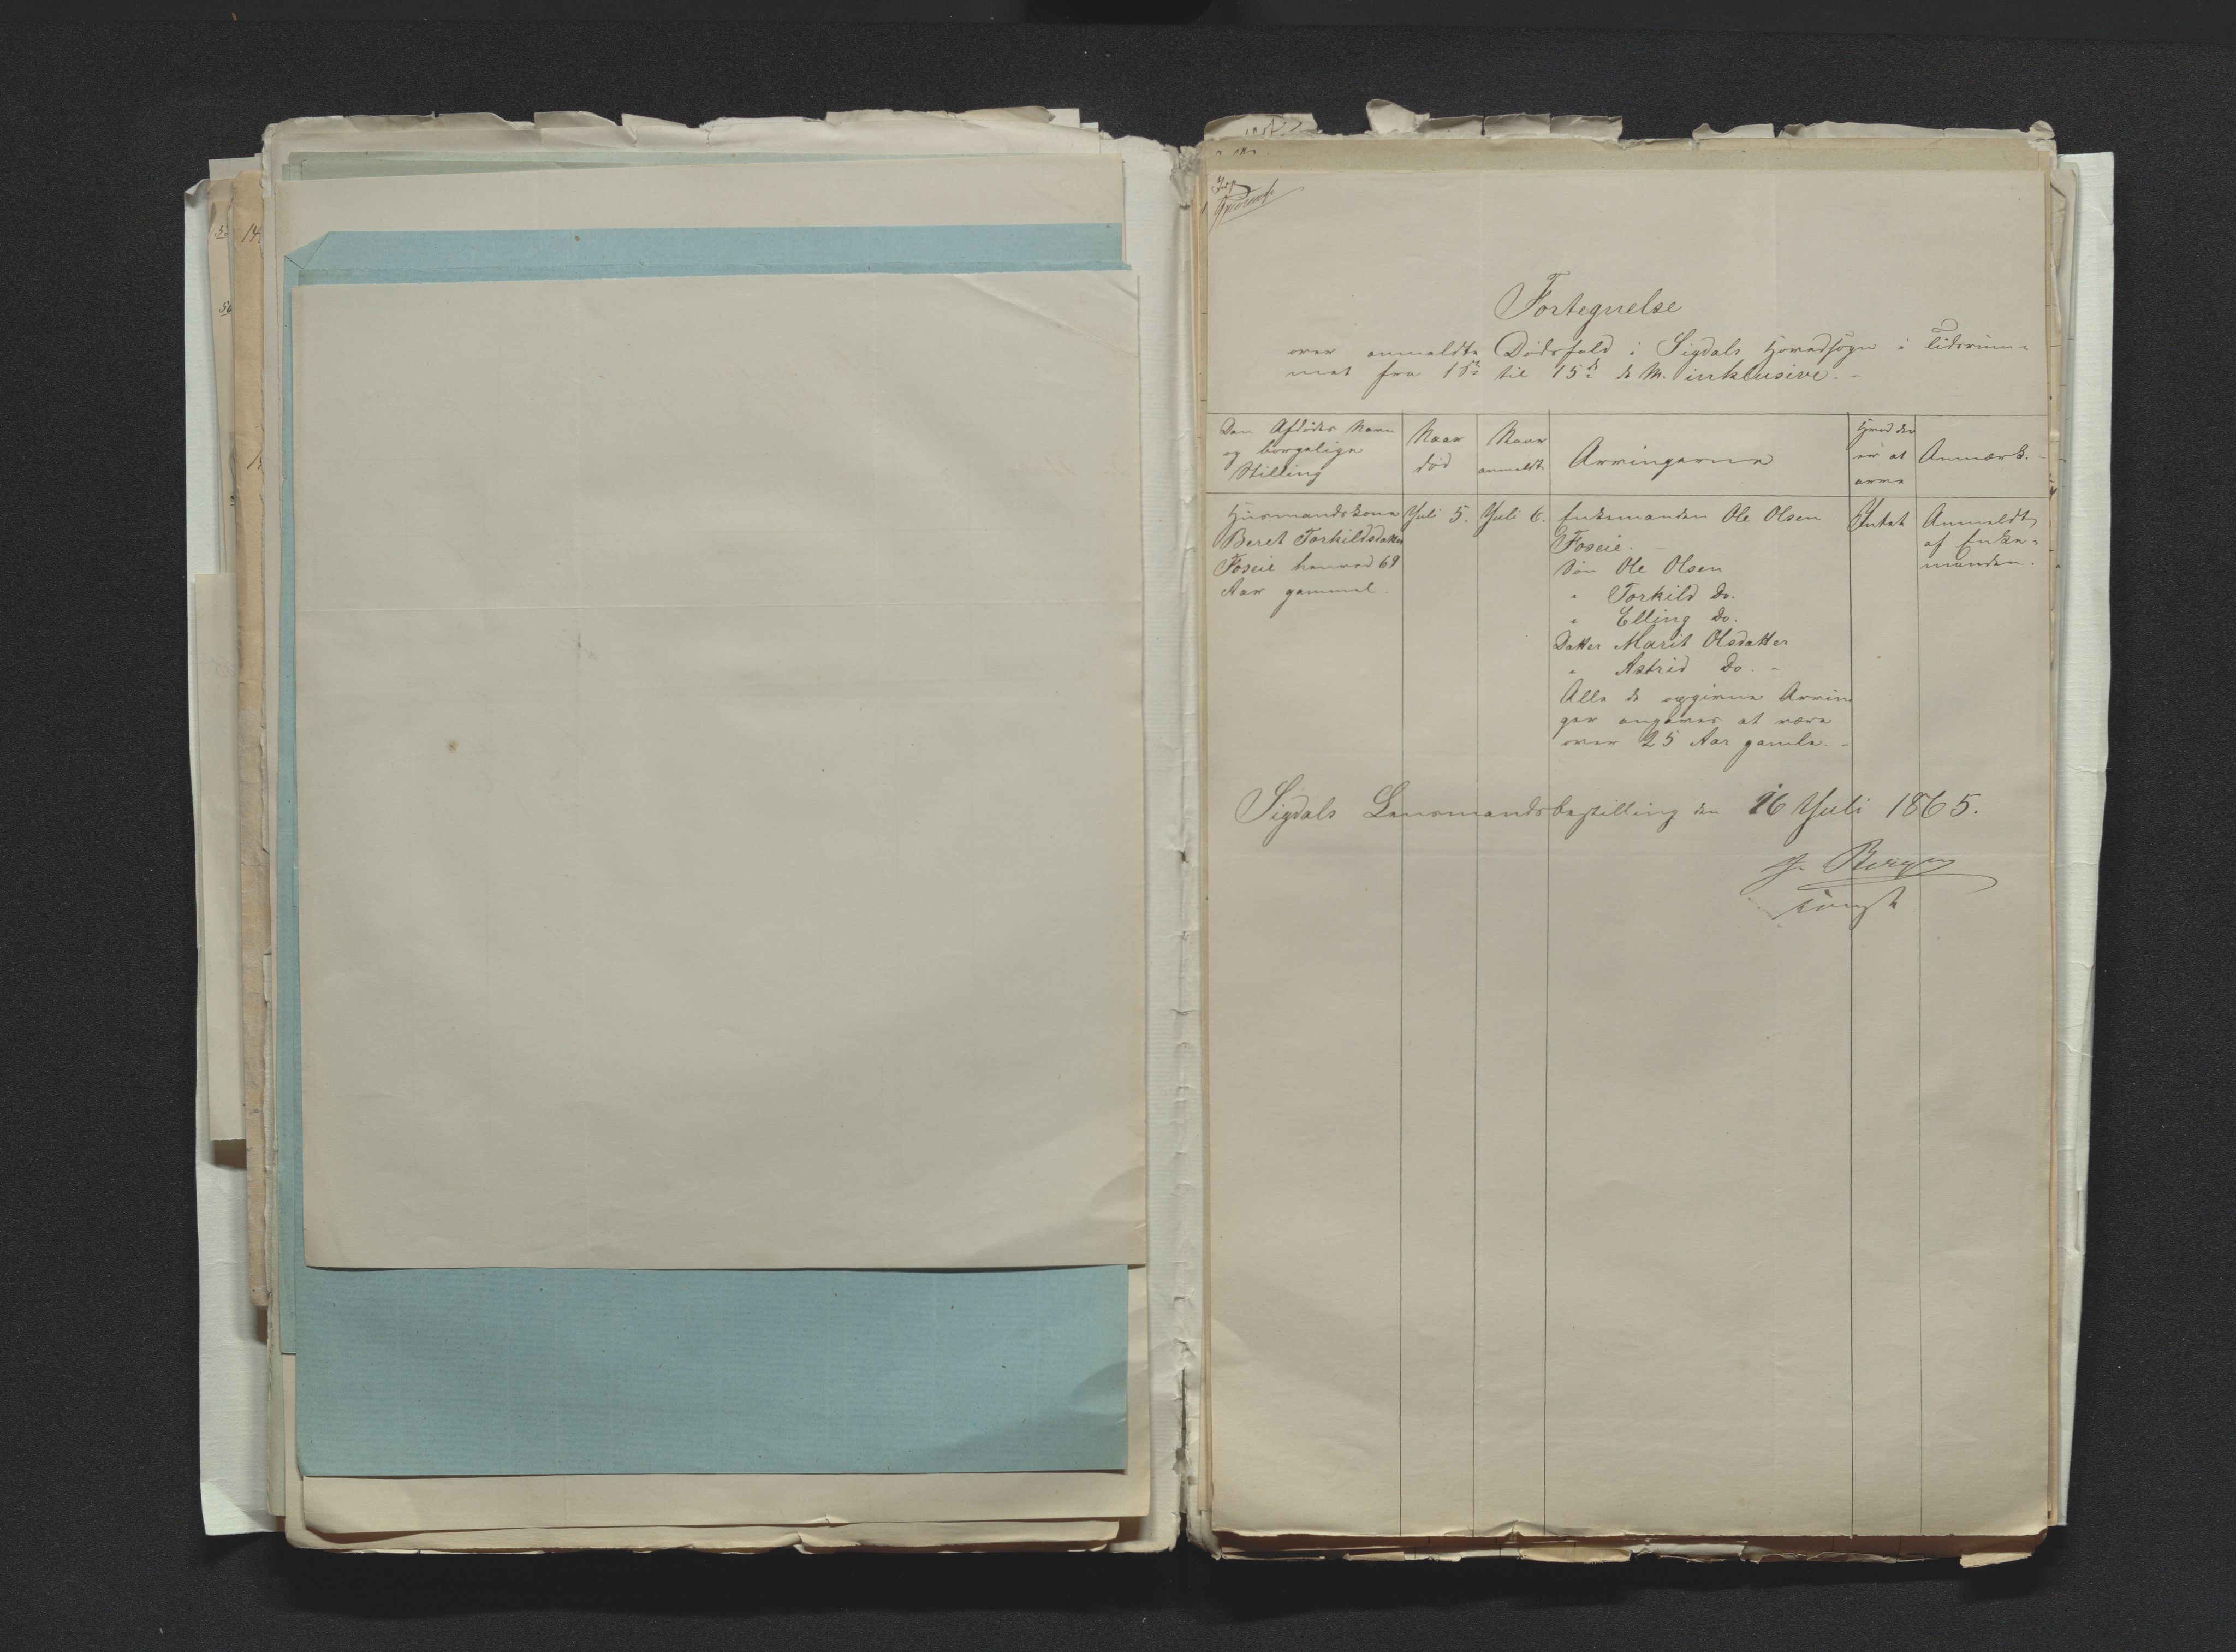 Fortegnelse
over anmeldte Dødsfald i Sigdals Hovedsogn i Tidsrum-
met fra 1ste til 15de d. M. inklusive. -
Den Afdødes Navn
og borgelige
Stilling
Naar
død
Naar
anmeldt
Arvingerne
Hvad der
er at
arve
Anmærk. -
Huusmandskone
Beret Torkildsdatter
Foseie henved 69
Aar gammel.
Juli 5.
Juli 6.
Enkemanden Ole Olsen
Foseie. -
Søn Ole Olsen
" Torkild Do.
" Elling Do.
Datter Marit Olsdatter
" Astrid Do. -
Alle de opgivne Arvin
ger angives at være
over 25 Aar gamle. -
Intet
Anmeldt
af Enke-
manden.
Sigdals Lensmandsbestilling den 16 Juli 1865.